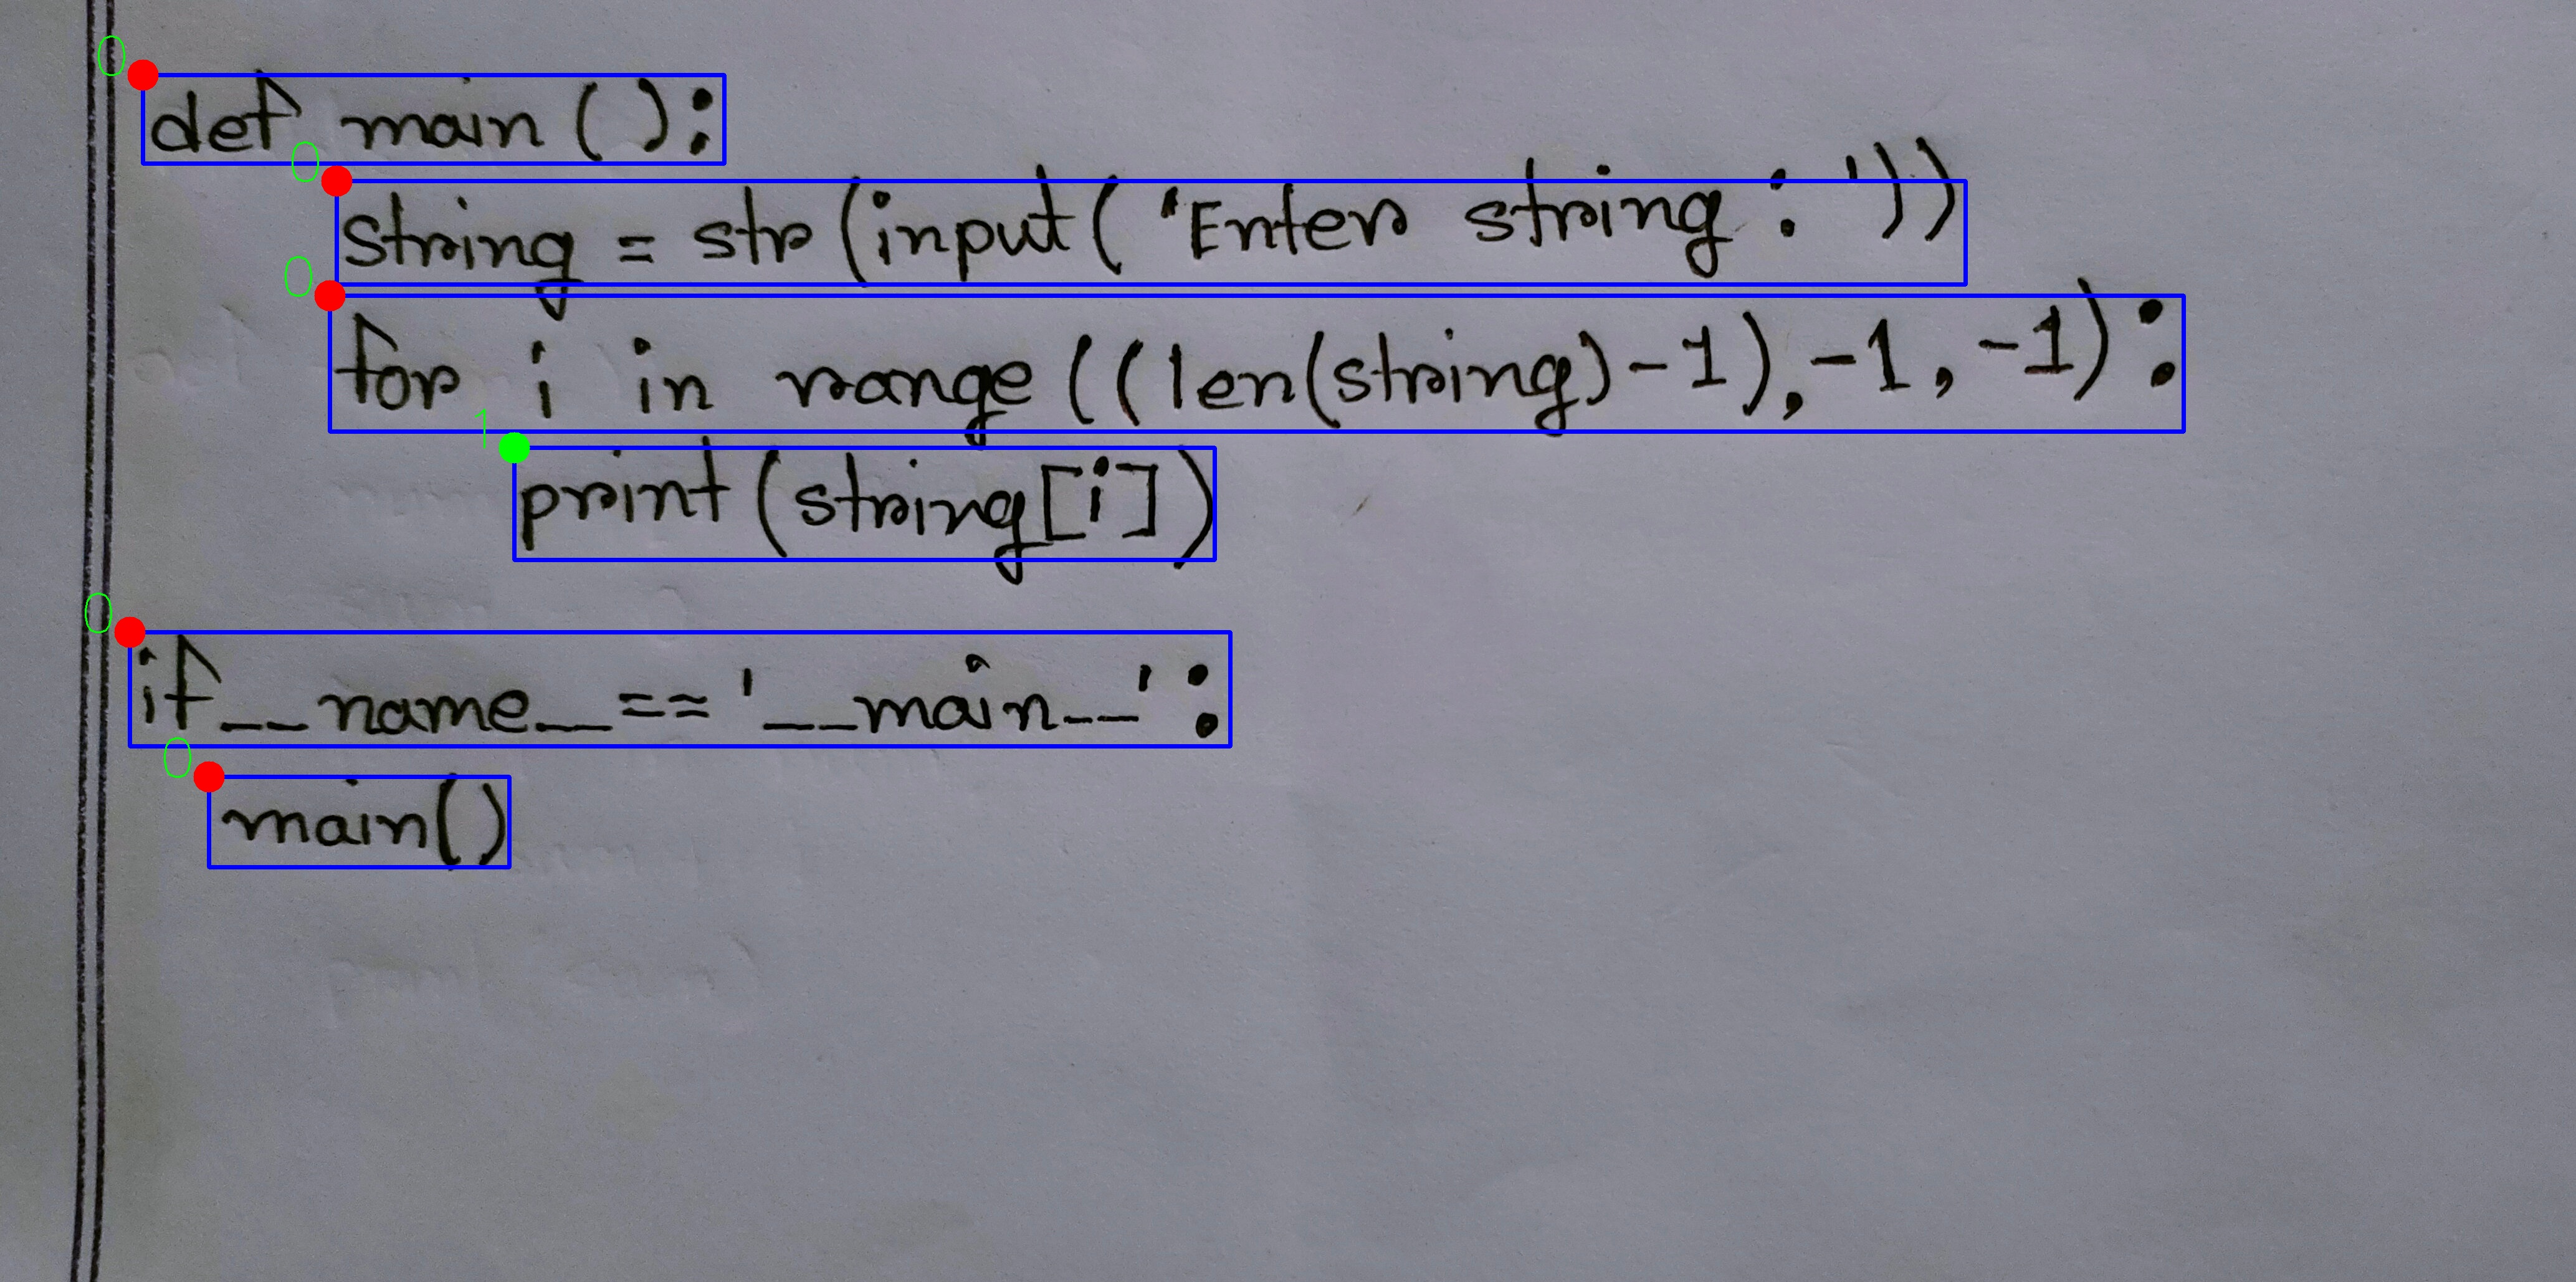 def main():
string = str(input('Enter string : '))
for i in range((len(string)-1),-1,-1):
print(string[i])
if __name__=='__main__':
main()
0
0
0
1
0
0